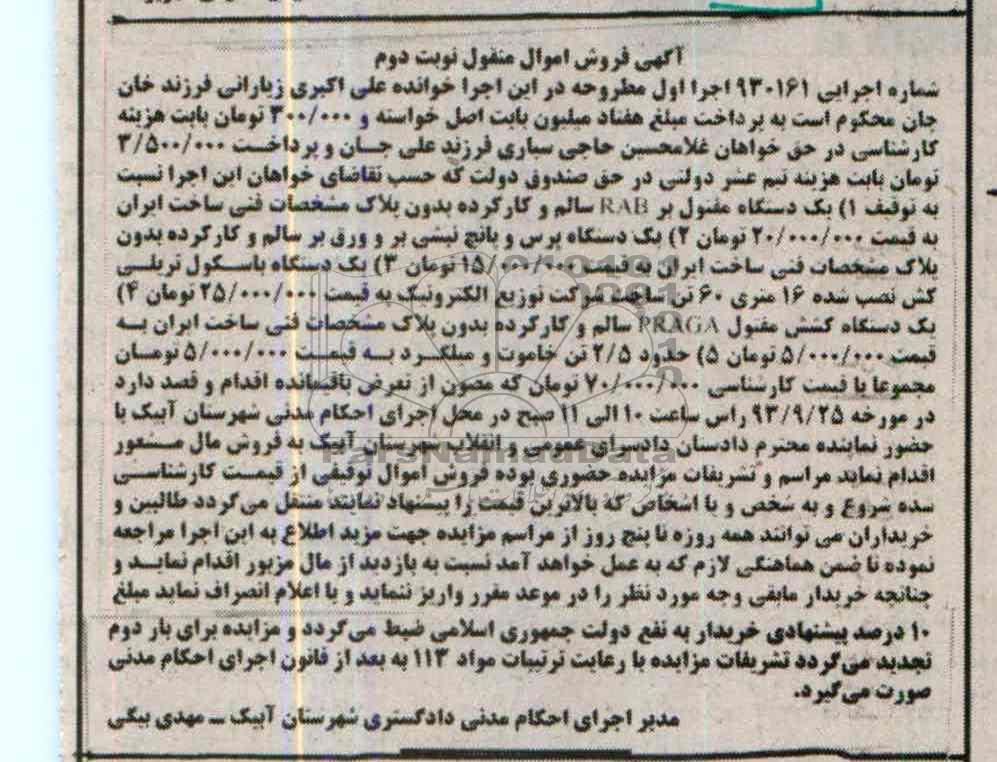 آگهی فروش اموال منقول نوبت دوم
شماره اجرایی ۹۳۰۱۶۱ اجرا اول مطروحه در این اجرا خوانده علی اکبری زیارانی فرزند خان
جان محکوم است به پرداخت مبلغ هفتاد میلیون بابت اصل خواسته و ۳۰۰/۰۰۰ تومان بابت هزینه
کارشناسی در حق خواهان غلامحسین حاجی سیاری فرزند علی جان و پرداخت ۳/۵۰۰/۰۰۰
تومان بابت هزینه نیم عشر دولتی در حق صندوق دولت که حسب تقاضای خواهان این اجرا نسبت
به توقیف ۱) یک دستگاه مفتول بر RAB سالم و کارکرده بدون پلاک مشخصات فنی ساخت ایران
به قیمت ۲۰/۰۰۰/۰۰۰ تومان ۲) یک دستگاه پرس و پانچ نبشی بر و ورق بر سالم و کارکرده بدون
پلاک مشخصات فنی ساخت ایران به قیمت ۱۵/۰۰۰/۰۰۰ تومان ۳) یک دستگاه باسکول تریلی
کش نصب شده ۱۶ متری ۶۰ تن ساخت شرکت توزیع الکترونیک به قیمت ۲۵/۰۰۰/۰۰۰ تومان ۴)
یک دستگاه کشش مفتول PRAGA سالم و کارکرده بدون پلاک مشخصات فنی ساخت ایران به
قیمت ۵/۰۰۰/۰۰۰ تومان ۵) حدود ۲/۵ تن خاموت و میلگرد به قیمت ۵/۰۰۰/۰۰۰ تومان
مجموعا با قیمت کارشناسی ۷۰/۰۰۰/۰۰۰ تومان که مصون از تعرض باقیمانده اقدام و قصد دارد
در مورخه ۹۳/۹/۲۵ راس ساعت ۱۰ الی ۱۱ صبح در محل اجرای احکام مدنی شهرستان آبیک با
حضور نماینده محترم دادستان دادسرای عمومی و انقلاب شهرستان آبیک به فروش مال مشعور
اقدام نماید مراسم و تشریفات مزایده حضوری بوده فروش اموال توقیفی از قیمت کارشناسی
شده شروع و به شخص و یا اشخاص که بالاترین قیمت را پیشنهاد نمایند منتقل می‌گردد طالبین و
خریداران می توانند همه روزه تا پنج روز از مراسم مزایده جهت مزید اطلاع به این اجرا مراجعه
نموده تا ضمن هماهنگی لازم که به عمل خواهد آمد نسبت به بازدید از مال مزبور اقدام نماید و
چنانچه خریدار مابقی وجه مورد نظر را در موعد مقرر واریز ننماید و یا اعلام انصراف نماید مبلغ
۱۰ درصد پیشنهادی خریدار به نفع دولت جمهوری اسلامی ضبط می‌گردد و مزایده برای بار دوم
تجدید می‌گردد تشریفات مزایده با رعایت ترتیبات مواد ۱۱۳ به بعد از قانون اجرای احکام مدنی
صورت می‌گیرد.
مدیر اجرای احکام مدنی دادگستری شهرستان آبیک ـ مهدی بیگی
ParsNamadData